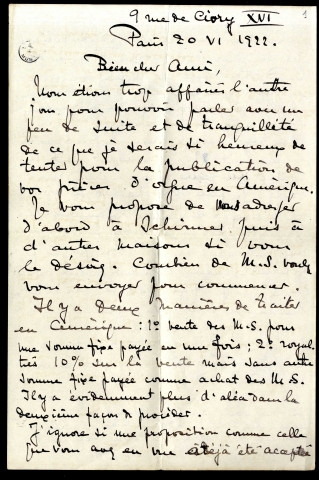 9 rue de Civry XVI
1
Paris 20 VI 1922.
Bien cher Ami,
Nous étions trop affairés l'autre
jour pour pouvoir parler avec un
peu de suite et de tranquillité
de ce que je serais si heureux de
tenter pour la publication de
vos pièces d'orgue en Amérique.
Je vous propose de nous adresser
d'abord à Schirmer puis à
d'autres maisons si vous
le désirez. Combien de M.S. voulez
vous envoyer pour commencer.
Il y a deux manières de traiter
en Amérique: 1º vente des M.S. pour
une somme fixe payée en une fois; 2º royal
ties 10% sur la vente mais sans autre
somme fixe payée comme achat des M.S.
Il y a évidemment plus d'aléa dans la
deuxième façon de procéder.
J'ignore si une proposition comme celle
que vous avez en vue a déjà été acceptée